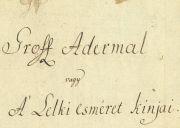 Groff Adermal
vagy
A' Lelki esméret kinjai.